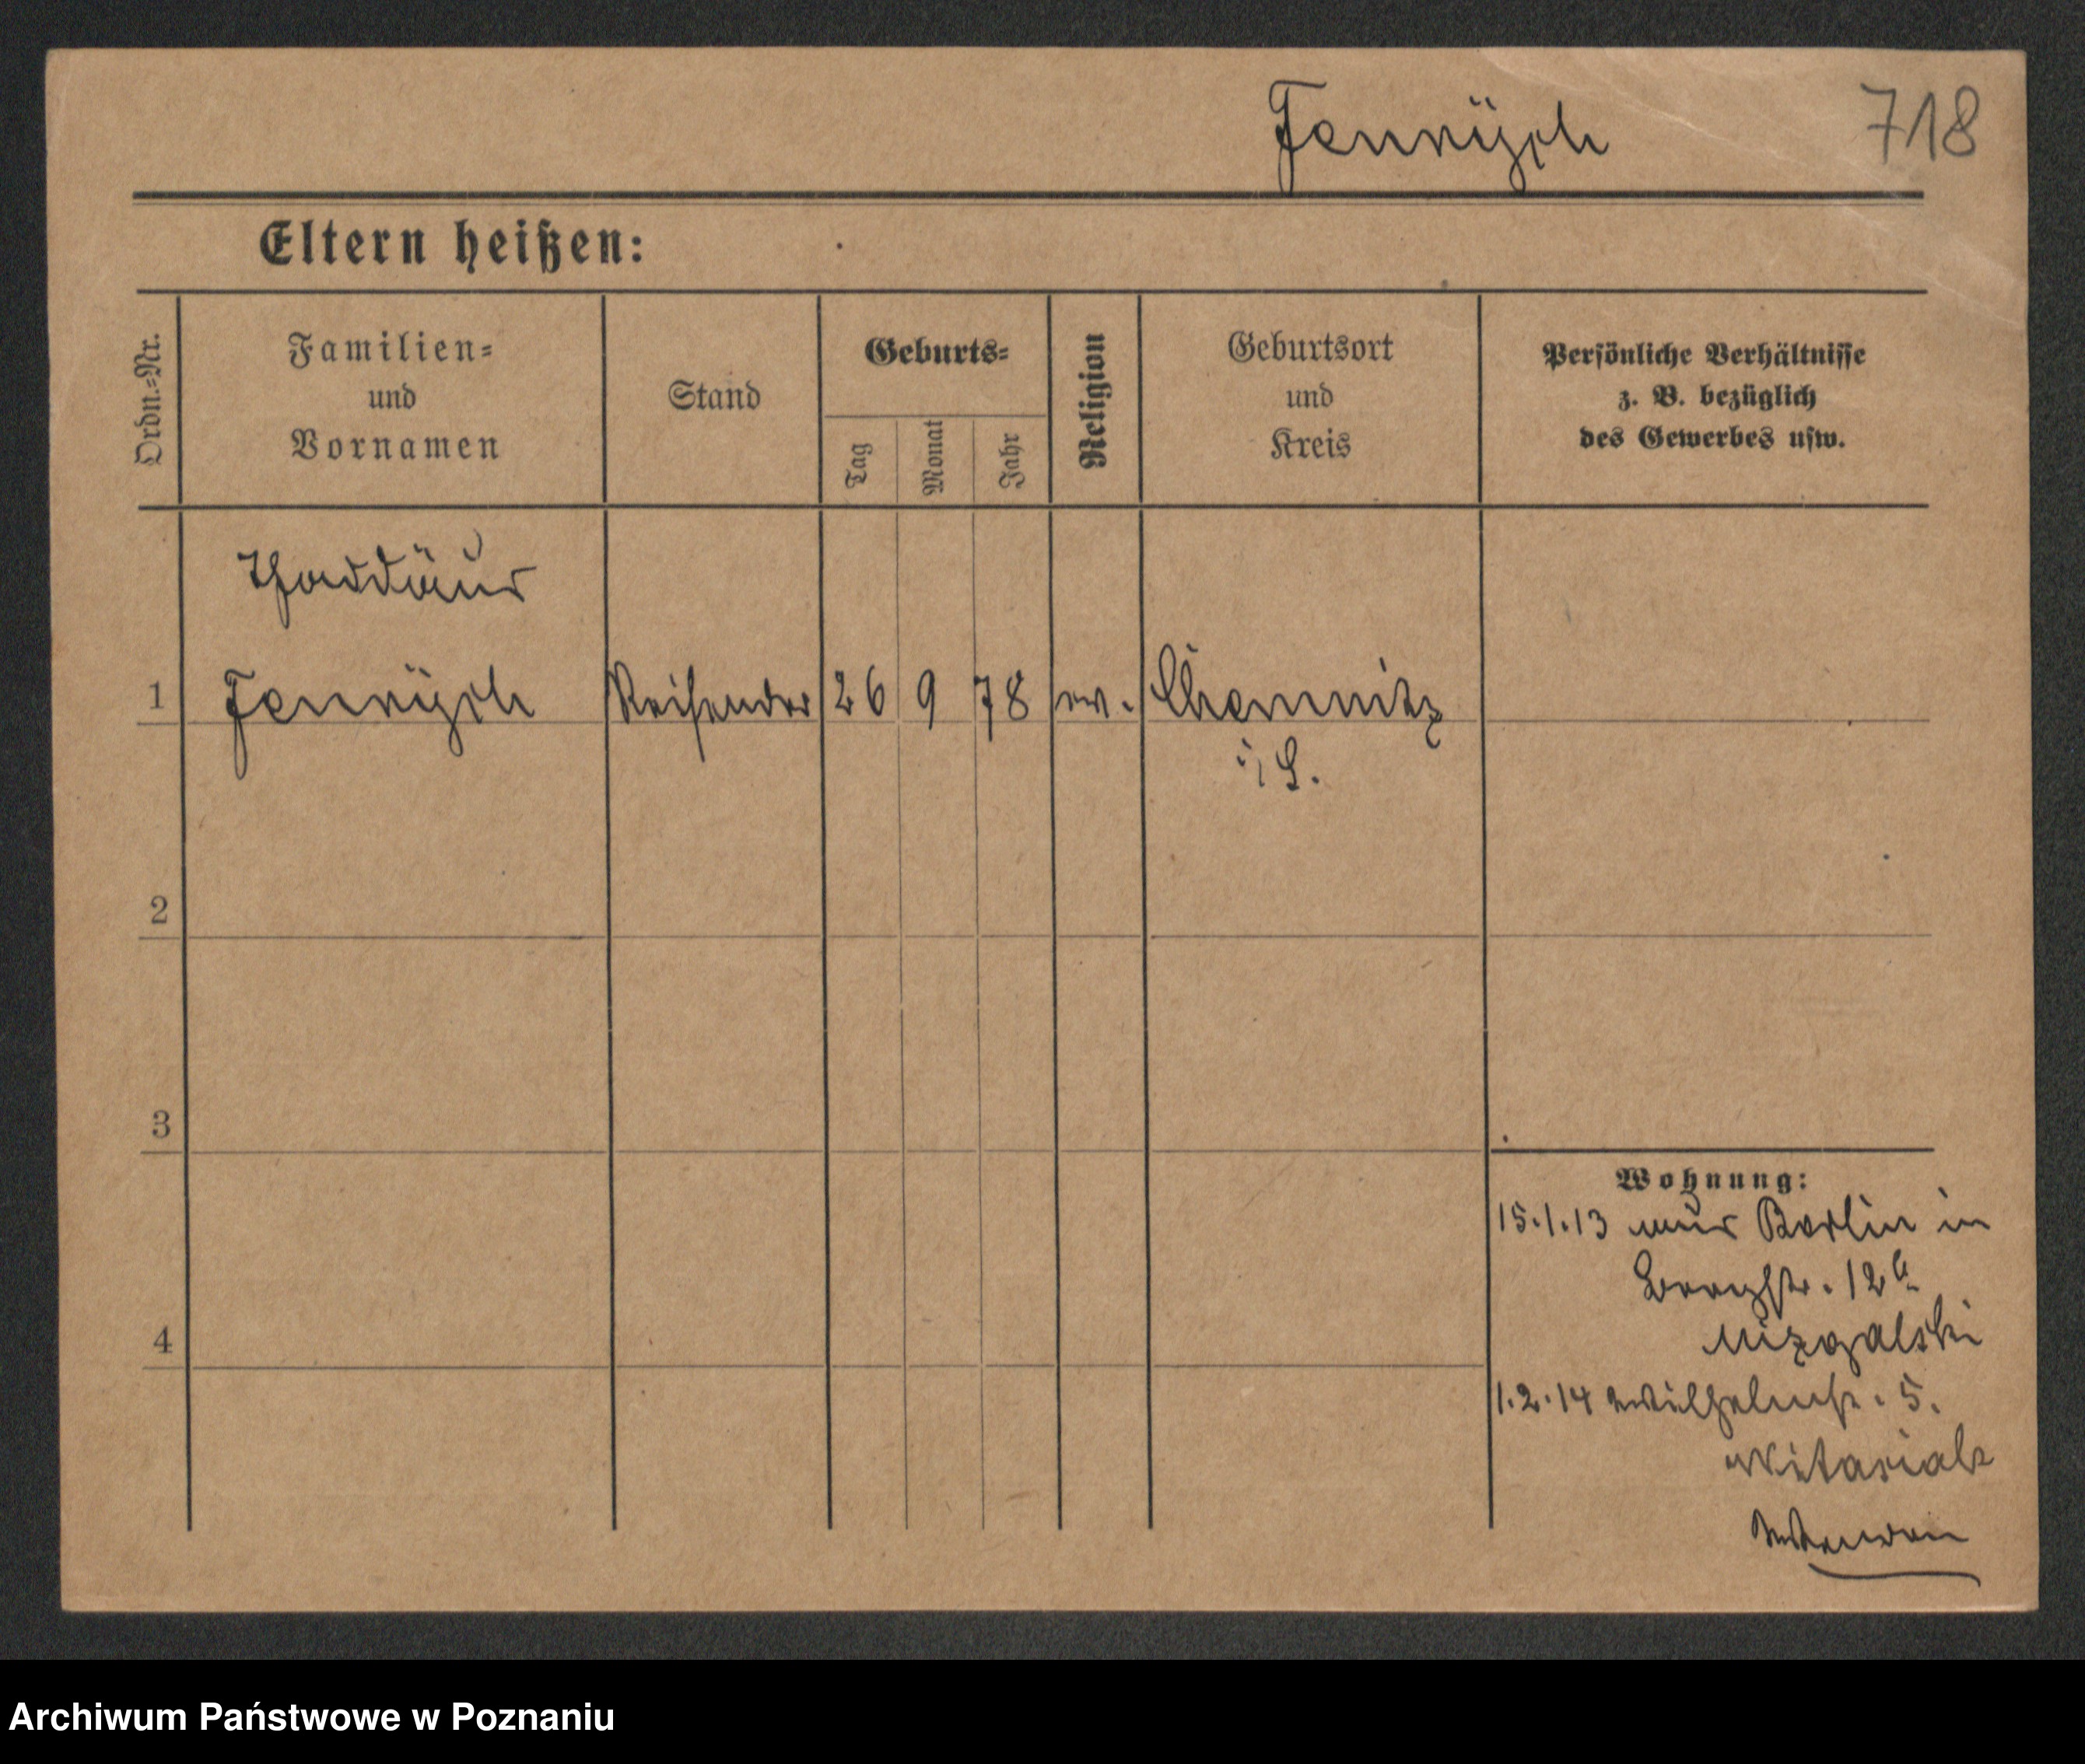 718
Eltern heißen:
Ordn.-Nr.
Familien-
und
Vornamen
Stand
Geburts-
Tag
Monat
Jahr
Religion
Geburtsort
und
Kreis
Persönliche Verhältnisse
z. B. bezüglich
des Gewerbes usw.
Thaddäus
1 Reisender 26 9 78 ev. Chemnitz
i/S.
2
3
4
Wohnung:
15.1.13 aus Berlin in
Bergstr. 12b
Mizgalski
1.2.14 Wilhelmstr. 5.
Archiwum Państwowe w Poznaniu